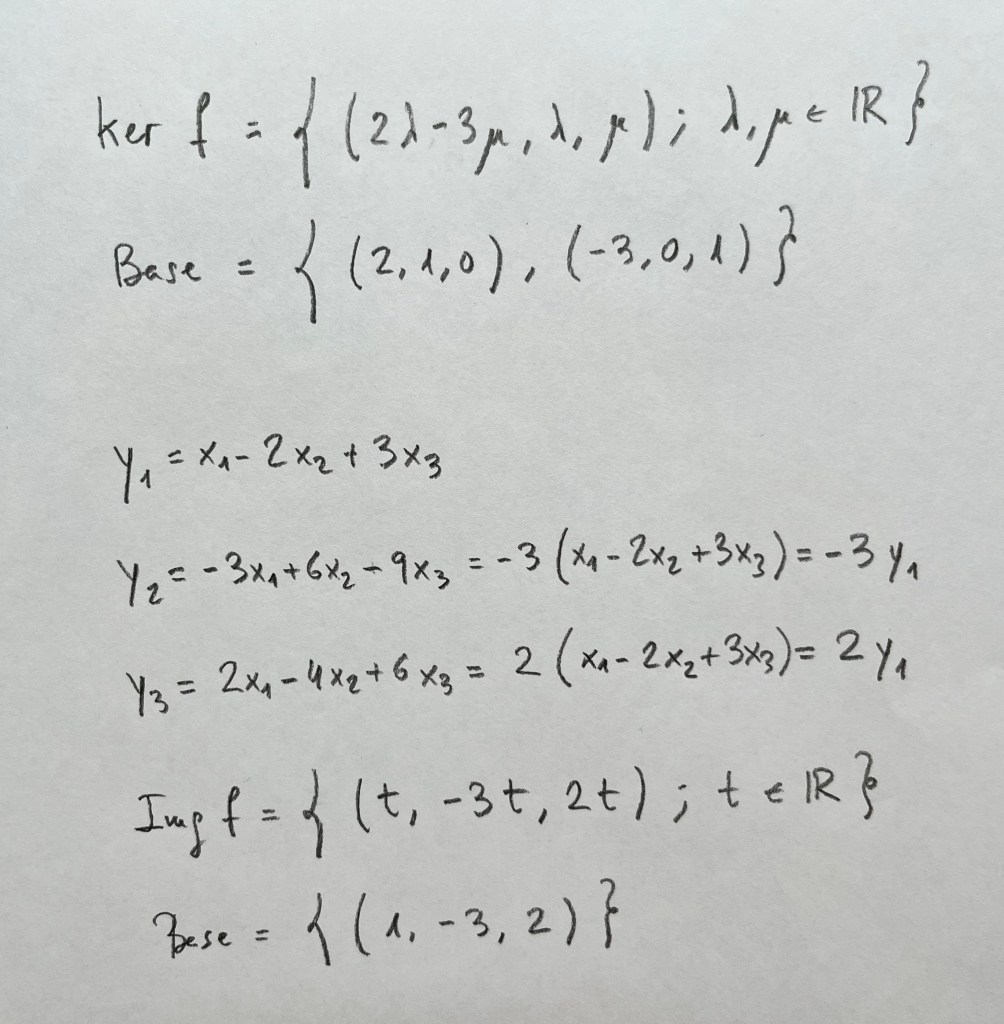 ker f = { (2λ-3μ, λ, μ); λ, μ ∈ ℝ }
Base = { (2,1,0), (-3,0,1) }
y₁ = x₁ - 2x₂ + 3x₃
y₂ = -3x₁ + 6x₂ - 9x₃ = -3 (x₁ - 2x₂ + 3x₃) = -3 y₁
y₃ = 2x₁ - 4x₂ + 6x₃ = 2 (x₁ - 2x₂ + 3x₃) = 2 y₁
Img f = { (t, -3t, 2t); t ∈ ℝ }
Base = { (1, -3, 2) }